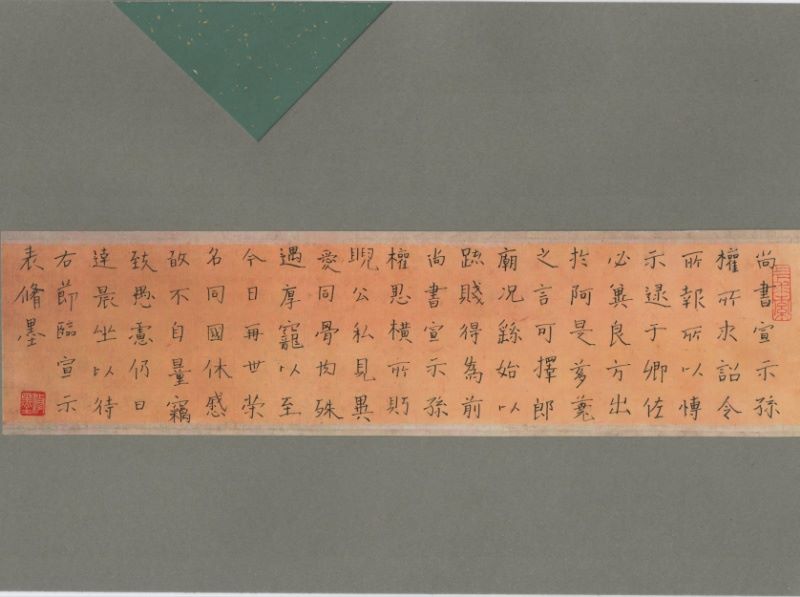 尚書宣示孫
權所求詔令
所報所以博
示逮于卿佐
必冀良方出
於阿是芻蕘
之言可擇郎
廟況繇始以
疏賤得為前
尚書宣示孫
權恩橫所盻
睨公私見異
愛同骨肉殊
遇厚寵以至
今日再世榮
名同國休慼
敢不自量竊
致愚慮仍日
達晨坐以待
右節臨宣示
表脩墨